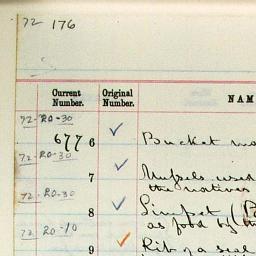 72 176
Current Number. Original Number. NAM
72-20-30
6776 Bucket
72-20-30
7 Mussels used
the natives
72-20-30
8 Limpet (
as food by the
72 20-10
9 Rib of a seal